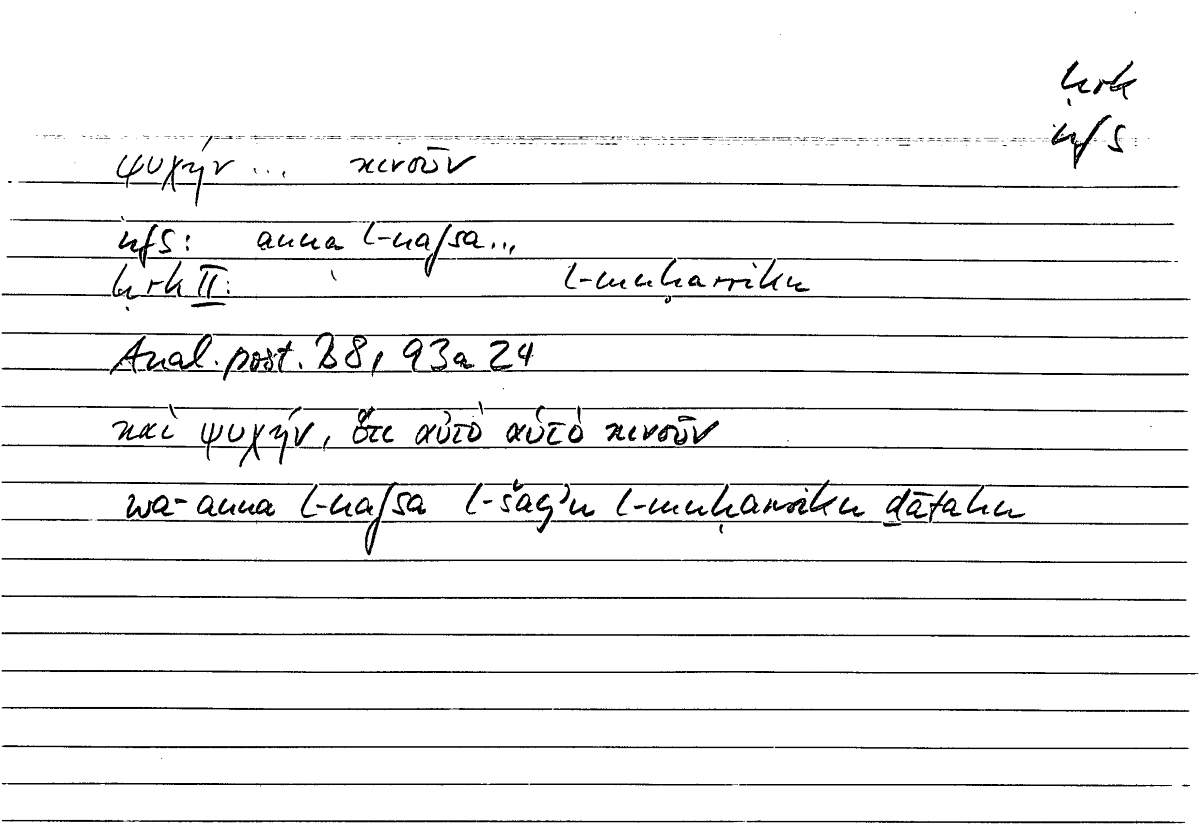 ḥrk
nfs
ψυχήν ... κινοῦν
nfs: anna l-nafsa...
ḥrk II: l-muḥarriku
Anal. post. B8, 93a 24
καὶ ψυχήν, ὅτι αὐτὸ αὑτὸ κινοῦν
wa-anna l-nafsa l-šayʾu l-muḥarriku ḏātahu